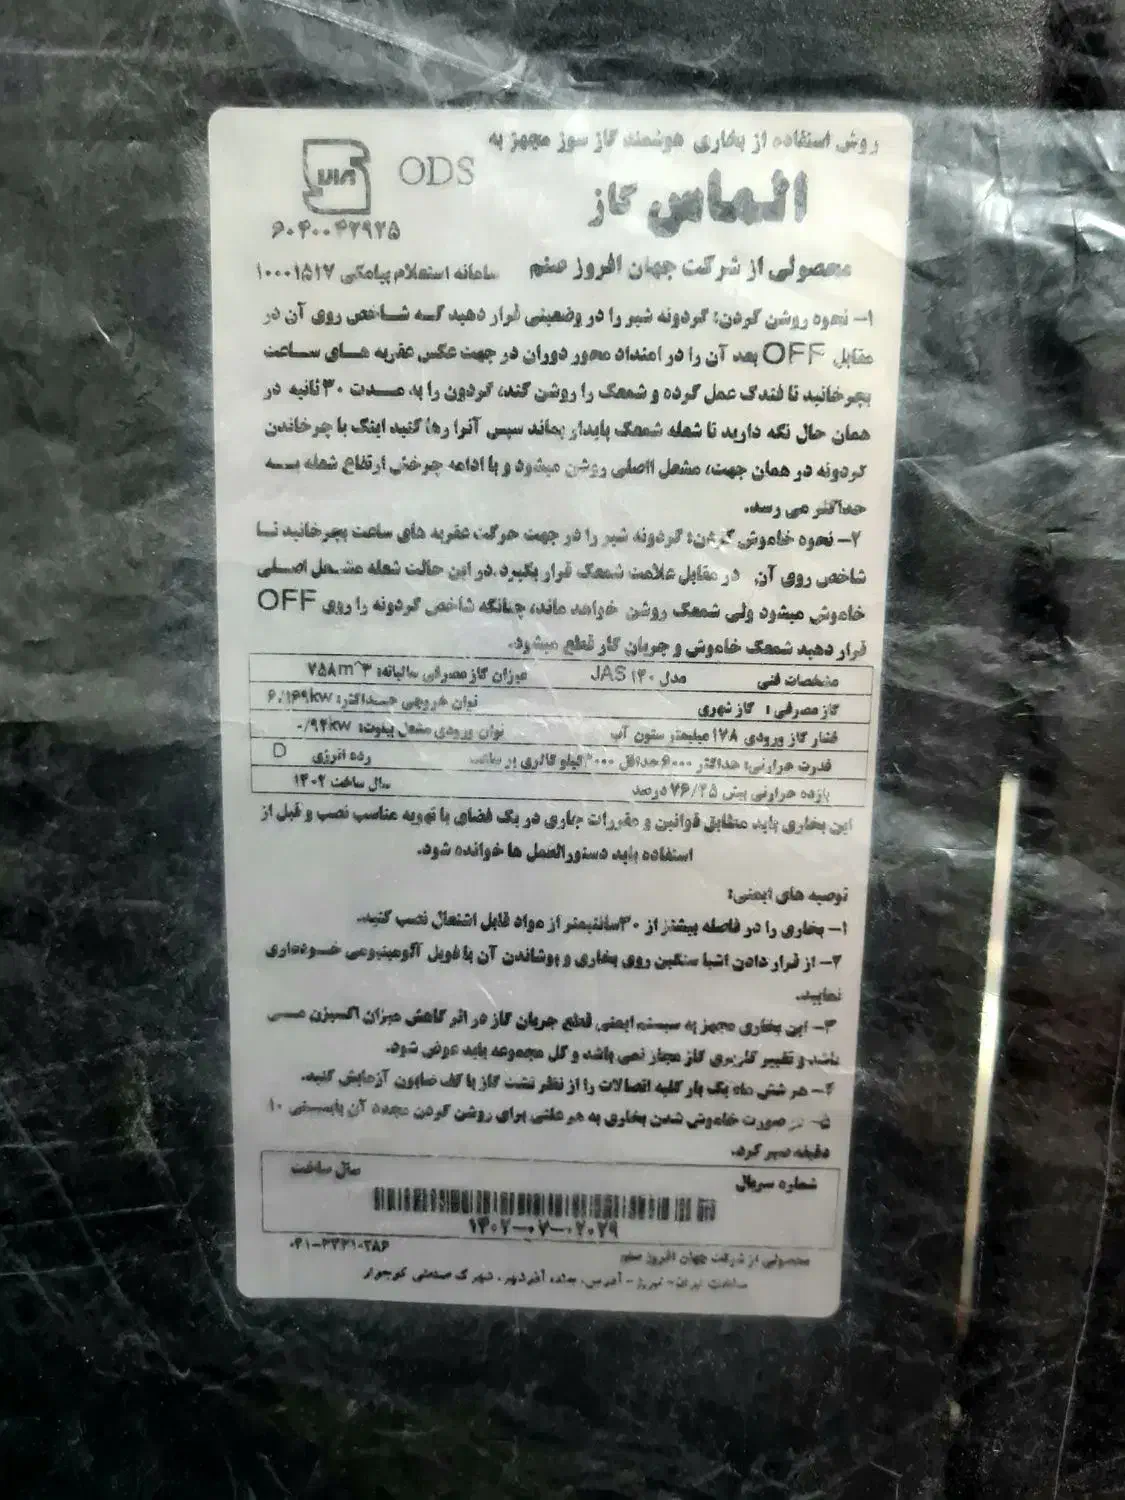 روش استفاده از بخاری هوشمند گاز سوز مجهز به
ODS
الماس گاز
۶۰۴۰۰۴۲۹۲۵
محصولی از شرکت جهان افروز صنم
سامانه استعلام پیامکی ۱۰۰۰۱۵۱۷
۱- نحوه روشن کردن: گردونه شیر را در وضعیتی قرار دهید که شاخص روی آن در
مقابل OFF بعد آن را در امتداد محور دوران در جهت عکس عقربه های ساعت
بچرخانید تا فندک عمل کرده و شمعک را روشن کند، گردون را به مدت ۳۰ ثانیه در
همان حال نگه دارید تا شعله شمعک پایدار بماند سپس آنرا رها کنید اینک با چرخاندن
گردونه در همان جهت، مشعل ااصلی روشن میشود و با ادامه چرخش ارتفاع شعله به
حداکثر می رسد.
۲- نحوه خاموش کردن: گردونه شیر را در جهت حرکت عقربه های ساعت بچرخانید تا
شاخص روی آن، در مقابل علامت شمعک قرار بگیرد. در این حالت شعله مشعل اصلی
خاموش میشود ولی شمعک روشن خواهد ماند، چنانکه شاخص گردونه را روی OFF
قرار دهید شمعک خاموش و جریان گاز قطع میشود.
مشخصات فنی مدل JAS ۱۴۰ میزان گاز مصرفی سالیانه: ۷۵۸m^۳
گاز مصرفی : گاز شهری توان خروجی حداکثر: ۶/۱۶۹kw
فشار گاز ورودی ۱۷۸ میلیمتر ستون آب توان ورودی مشعل پیلوت: ۰/۹۴kw
قدرت حرارتی: حداکثر ۶۰۰۰ حداقل ۳۰۰۰ کیلو کالری بر ساعت رده انرژی D
بازده حرارتی بیش ۷۶/۴۵ درصد سال ساخت ۱۴۰۲
این بخاری باید مطابق قوانین و مقررات جاری در یک فضای با تهویه مناسب نصب و قبل از
استفاده باید دستورالعمل ها خوانده شود.
توصیه های ایمنی:
۱- بخاری را در فاصله بیشتر از ۳۰ سانتیمتر از مواد قابل اشتعال نصب کنید.
۲- از قرار دادن اشیا سنگین روی بخاری و پوشاندن آن با فویل آلومینیومی خودداری
نمایید.
۳- این بخاری مجهز به سیستم ایمنی قطع جریان گاز در اثر کاهش میزان اکسیژن می
باشد و تغییر کاربری گاز مجاز نمی باشد و کل مجموعه باید عوض شود.
۴- هر شش ماه یک بار کلیه اتصالات را از نظر نشت گاز با کف صابون آزمایش کنید.
۵- در صورت خاموش شدن بخاری به هر علتی برای روشن کردن مجدد آن بایستی ۱۰
دقیقه صبر کرد.
شماره سریال سال ساخت
۱۴۰۲-۰۷-۰۲۰۲۹
محصولی از شرکت جهان افروز صنم
ساخت ایران- تبریز- آدرس: جاده آذرشهر، شهرک صنعتی